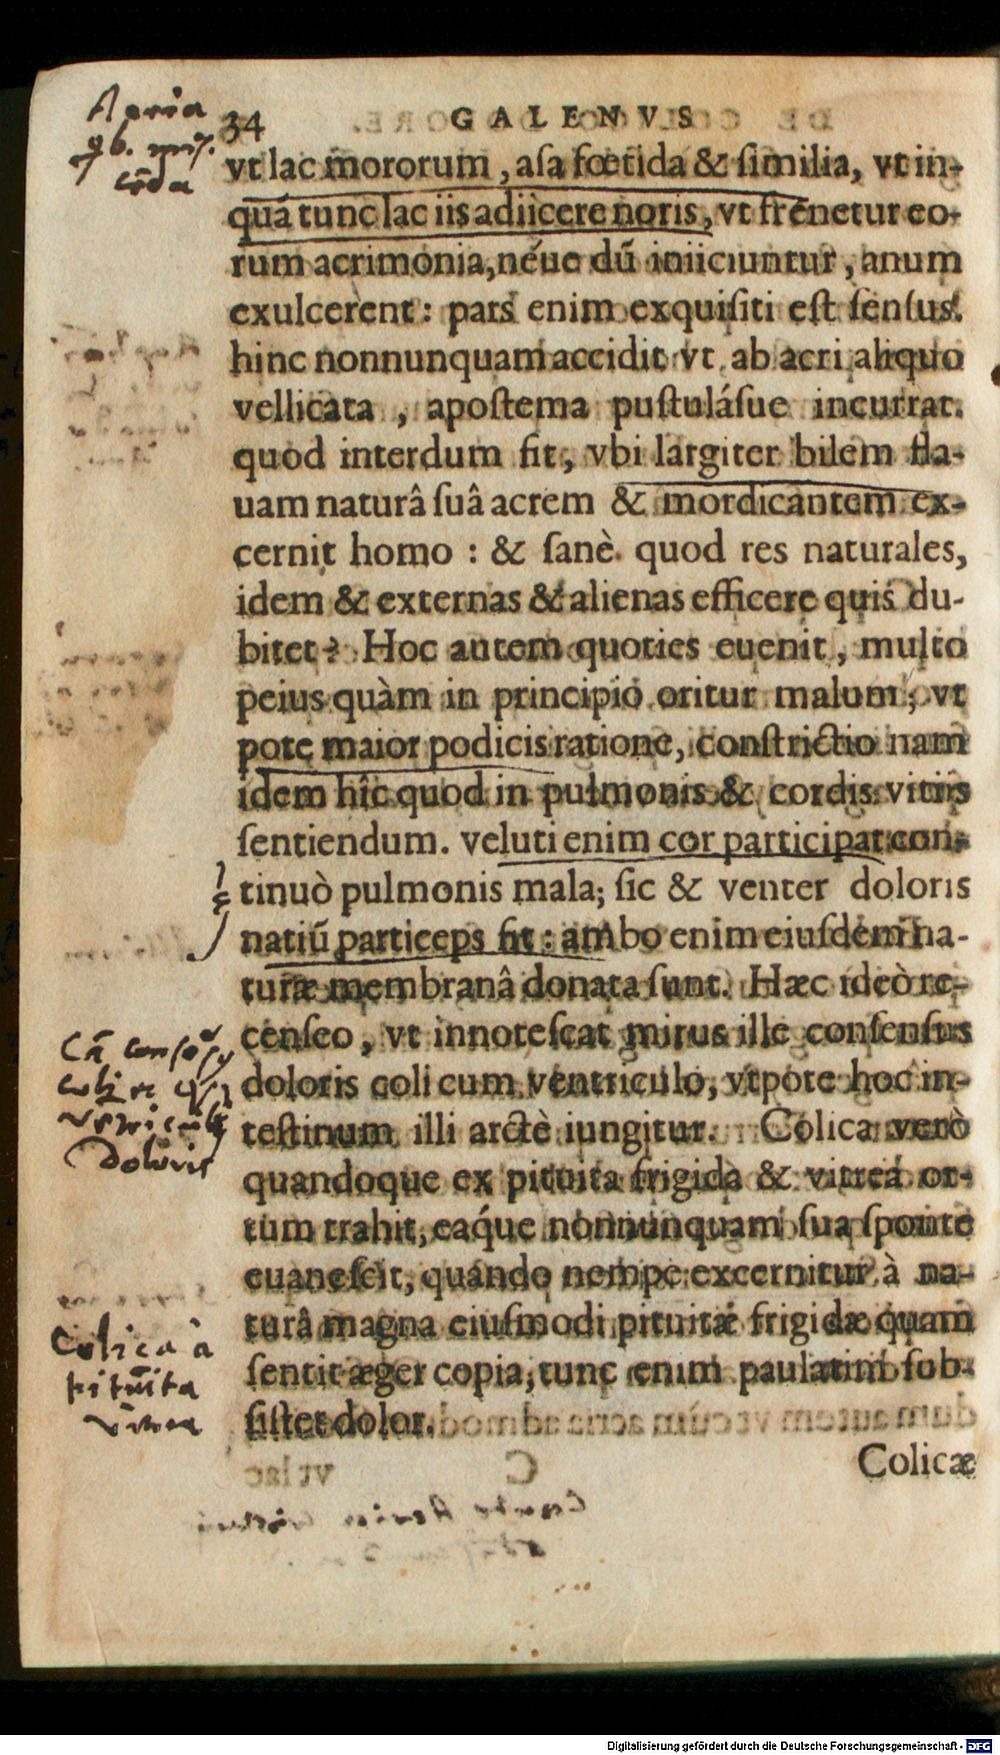 34 GALENVS
vt lac mororum, aſa fœtida & ſimilia, vt in-
quā tunc lac iis adiicere noris, vt frenetur eo-
rum acrimonia, néue dū iniiciuntur, anum
exulcerent: pars enim exquiſiti eſt ſenſus.
hinc nonnunquam accidit vt ab acri aliquo
vellicata, apoſtema puſtuláſue incurrat.
quod interdum fit, vbi largiter bilem fla-
uam naturâ ſuâ acrem & mordicantem ex-
cernit homo: & ſanè quod res naturales,
idem & externas & alienas efficere quis du-
bitet? Hoc autem quoties euenit, multo
peius quàm in principio oritur malum, vt
pote maior podicis ratione, conſtrictio nam
idem hîc quod in pulmonis & cordis vitiis
ſentiendum. veluti enim cor participat con-
tinuò pulmonis mala; ſic & venter doloris
natiū particeps fit: ambo enim eiuſdem na-
turæ membranâ donata ſunt. Hæc ideò re-
cenſeo, vt innoteſcat mirus ille conſenſus
doloris coli cum ventriculo, vtpote hoc in-
teſtinum illi arctè iungitur. Colica verò
quandoque ex pituita frigida & vitrea or-
tum trahit, eaq́ue nonnunquam ſua ſponte
euaneſcit, quando nempe excernitur à na-
turâ magna eiuſmodi pituitæ frigidæ quam
ſentit æger copia, tunc enim paulatim ſub-
ſiſtet dolor.
Colicæ
Acria
Doloris
Colica à
pituita
vitrea
Digitalisierung gefördert durch die Deutsche Forschungsgemeinschaft - DFG